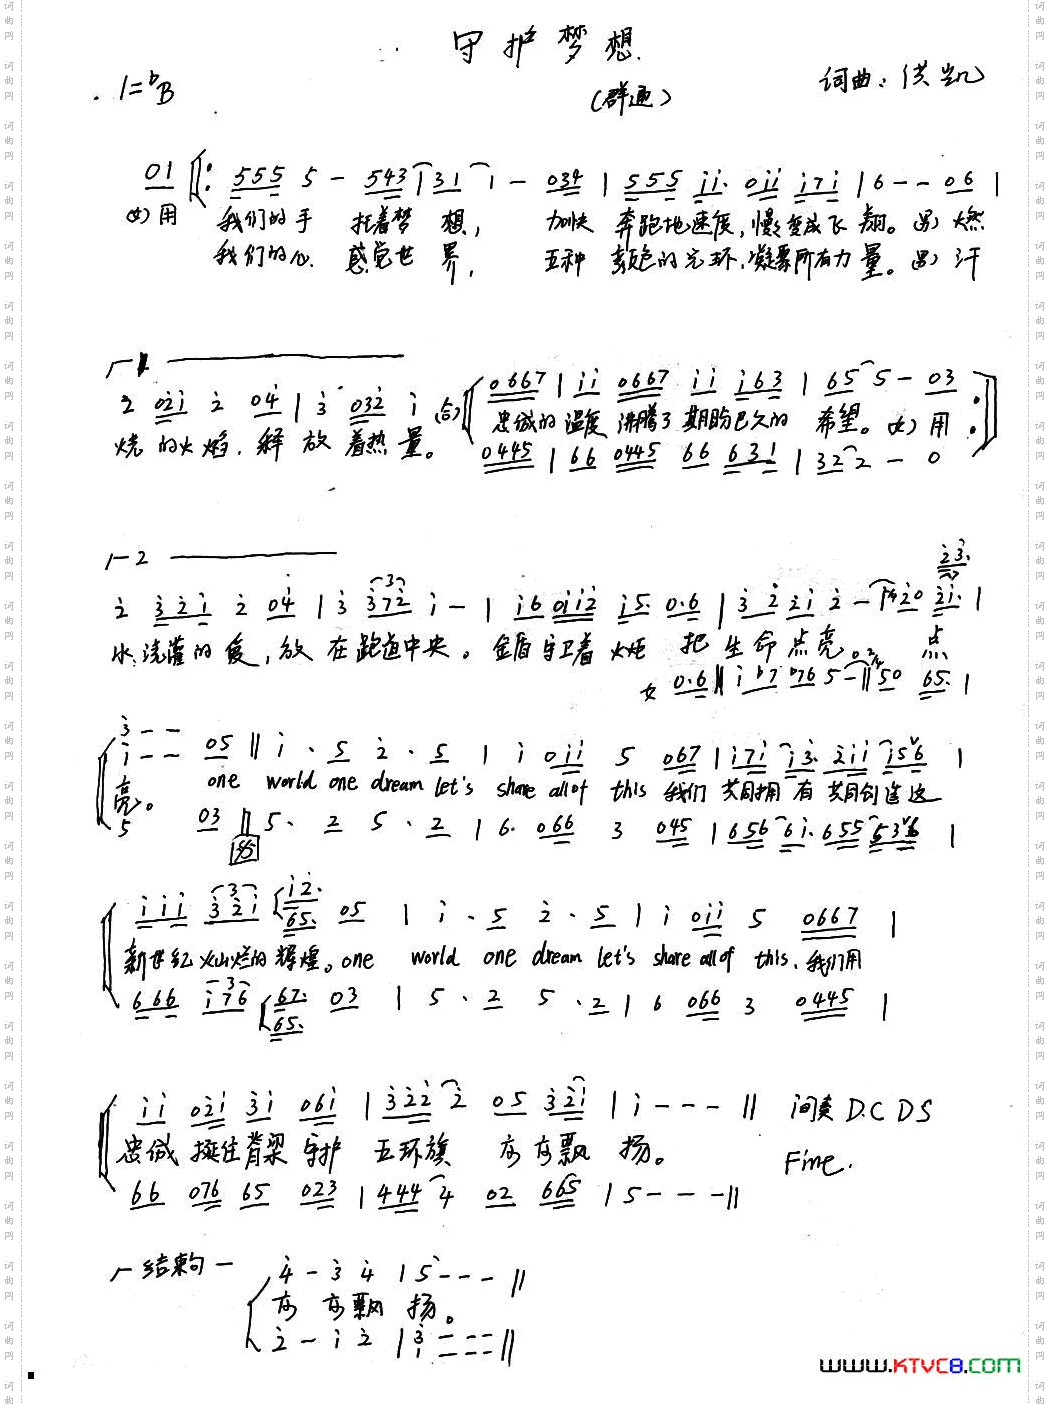 守护梦想
1=♭B
(群通)
词曲：洪凯
01 ‖: 555 5 - 543 | 31 1 - 034 | 555 ii. 0ii i7i | 6 - - 06 |
(女)用 我们的手 托着梦 想， 加快 奔跑地速度，慢变成飞 翔。(男)燃
我们的心 感觉世 界， 五种 颜色的光环，凝聚所有力量。(男)汗
0667 | ii 0667 ii i63 | 65 5 - 03
2 02i 2 04 | 3 032 i (合)
忠诚的温度 沸腾了 期盼已久的 希望。(女)用
烧的火焰，释放着热量。
0445 | 66 0445 66 631 | 32 2 - 0
1-2
23.
2 32i 2 04 | 3 372 i - | i6 0ii2 i5. 0.6 | 3 2 2i 2 - 20 2i. |
水浇灌的爱，放在跑道中央。金盾守卫着 火炬 把生命点亮。 点
女 0.6 ‖ i ♭7 ♭76 5 - ‖ 50 65. |
3 - -
i - - 05 ‖ i . 5 2 . 5 | i 0ii 5 067 | i7i i3. 2ii i56 |
亮。 one world one dream let's share all of this 我们 共同拥有 共同创造这
5 03 ‖ 5 . 2 5 . 2 | 6. 066 3 045 | 656 6i. 655 536 |
iii 32i i2. 65. 05 | i . 5 2 . 5 | i 0ii 5 0667 |
新世纪火灿烂的辉煌。one world one dream let's share all of this、我们用
666 i76 67. 65. 03 | 5 . 2 5 . 2 | 6 066 3 0445 |
ii 02i 3i 06i | 322 2 05 32i | i - - - ‖ 间奏 D.C D S
忠诚 挺住脊梁 守护 五环旗 高高飘 扬。 Fine.
66 076 65 023 | 444 4 02 665 | 5 - - - ‖
结束句
4 - 3 4 | 5 - - - ‖
高 高飘 扬。
2 - i 2 | 3 - - - ‖
i - - -
WWW.KTVC8.COM
词曲网